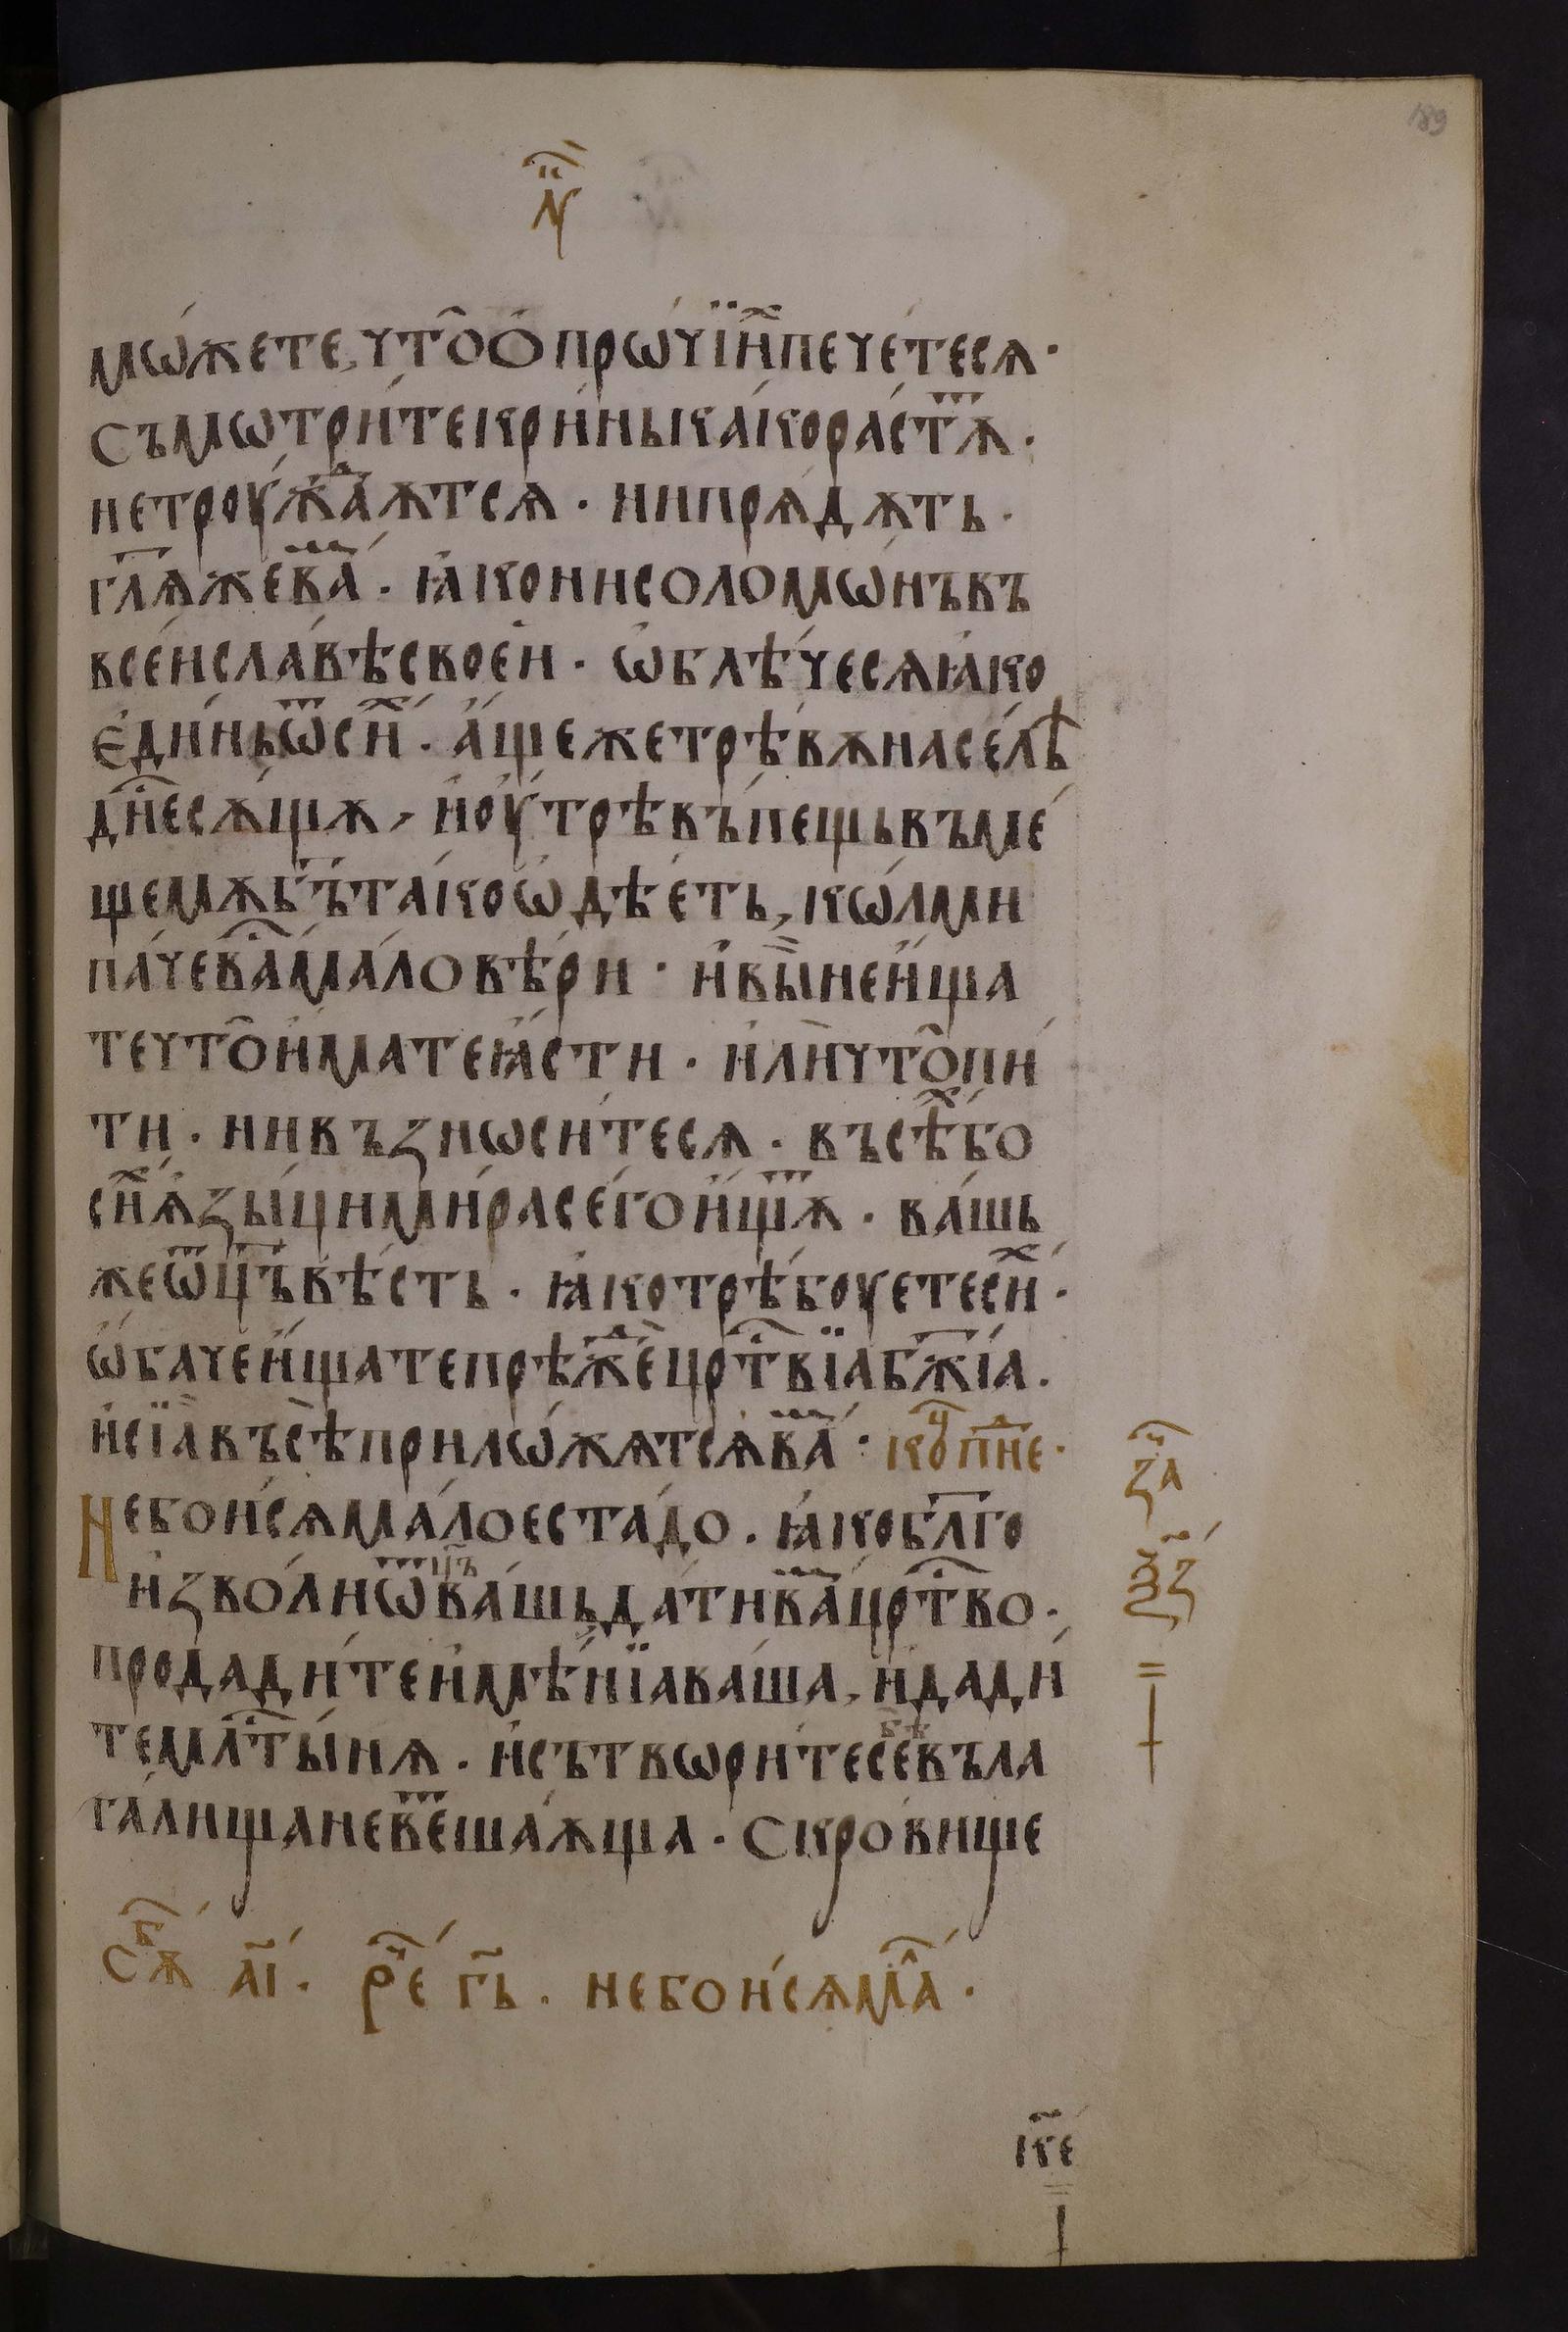 189
н҃
мѡ́жете, чтⷪ҇ о прѡ́чїиⷯ пече́тесѧ ·
Съмѡтри́те кри́ны ка́ко растѫⷮ ·
не троужⷣа́ѫтсѧ · ни прѧ́дѫть ·
гл҃ѧ же ваⷨ · ꙗ҆ко ни соломѡ́нъ въ
все́и сла́вѣ свое́и · ѡ҆блѣ́чесѧ ꙗ҆ко
є҆ди́нь ѿ сиⷯ · а҆́ще же трѣ́вѫ на се́лѣ
дн҇е сѫ́щѫ, и҆ оу҆трѣ въ пещь въме́
щемѫ б҃ъ та́ко ѡ҆дѣ́еть, кѡ́лми
па́че ва́ⷭ мало вѣ́ри · и҆ вы̀ не и҆́ща
те чтⷪ҇ и҆́мате ꙗ҆́сти · и҆лѝ чтⷪ҇ пи́
ти · ни възноси́тесѧ · въсѣⷯ бо
сиⷯ ѧ҆зы́ци ми́ра сего̀ и҆́щѫⷮ · ва́шь
же ѿц҃ъ вѣ́сть · ꙗ҆ко трѣ́боуете сиⷯ ·
ѡ҆́баче и҆щате прѣ́жⷣе црⷭ҇твїа бж҃їа ·
и҆ сїа̀ въсѣ̀ прилѡ́жѫтсѧ ваⷨ · коⷰ҇ пнⷣе ·
Не бои́сѧ ма́лое ста́до · ꙗ҆ко бл҃го
и҆зво́ли ѿц҃ъ ва́шь да́ти ваⷨ црⷭ҇тво ·
продади́те и҆мѣ́нїа ва́ша, и҆ дади́
те млⷭ҇ты́нѧ · и҆ сътвори́те себѣ въла
га́лища не веⷮша́ѫща · Скро́вище
сѫⷠ҇ а҃і · реⷱ҇ г҃ь · не бои́сѧ маⷧ҇ ·
заⷱ҇
ѯ҃з
к҃е